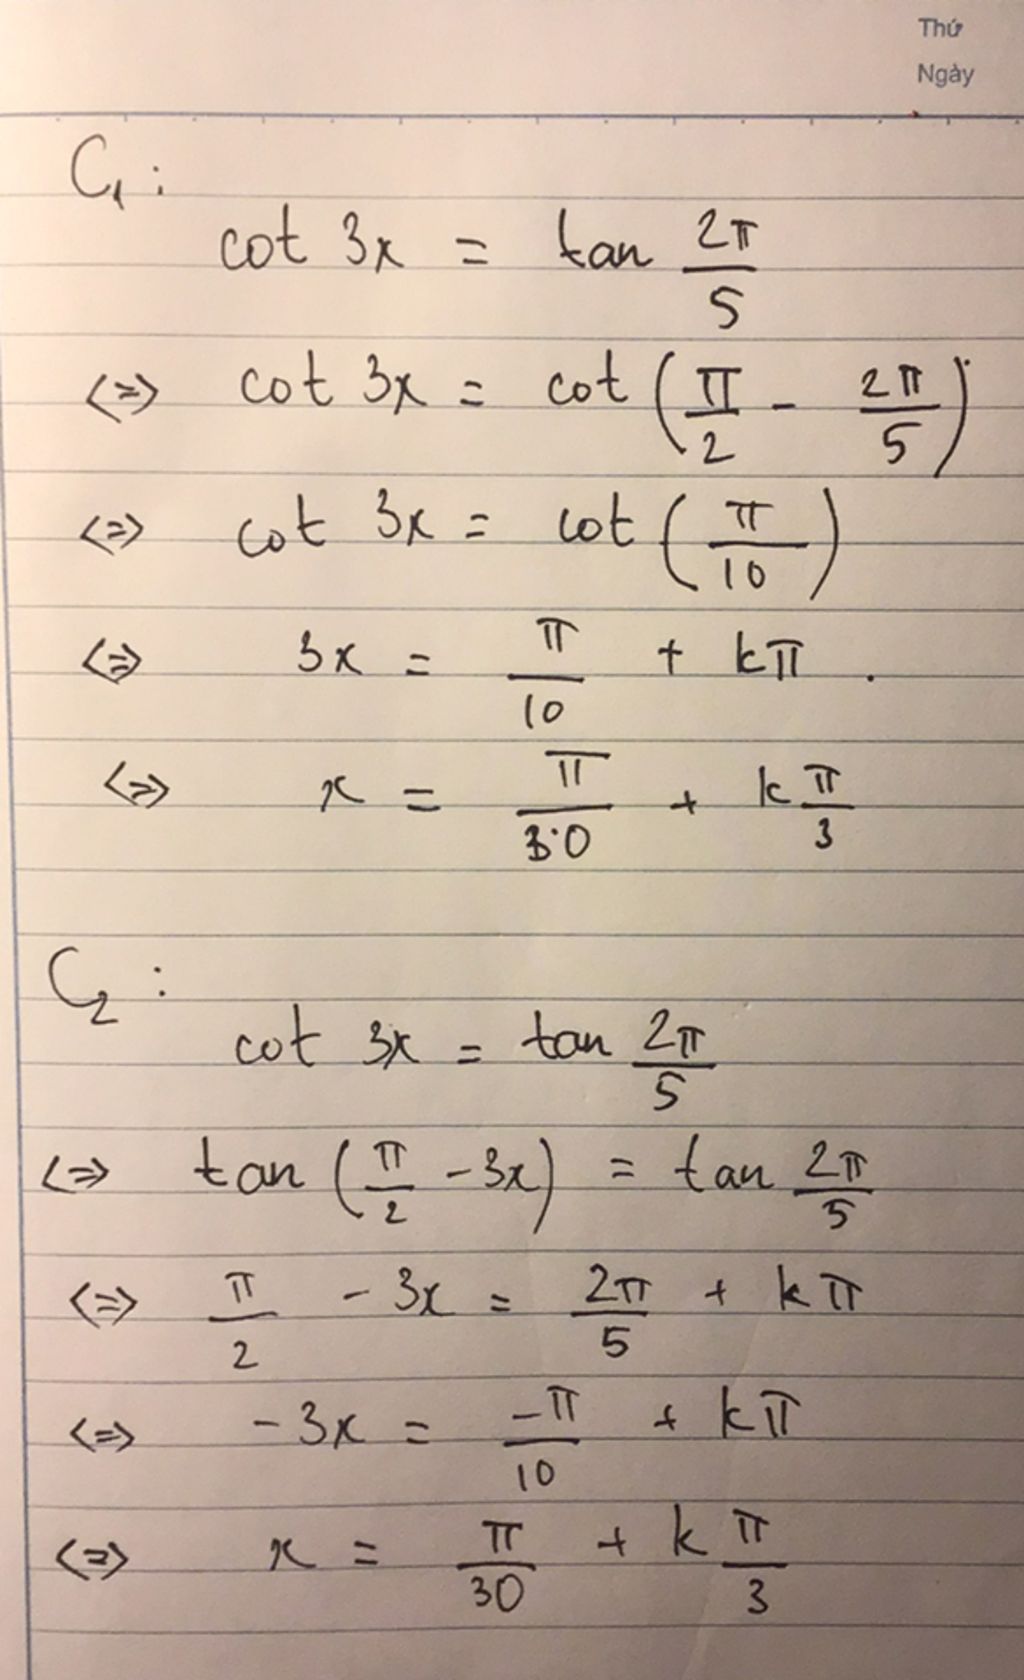 Thứ
Ngày
C₁ :
cot 3x = tan 2π/5
<=> cot 3x = cot (π/2 - 2π/5)
<=> cot 3x = cot (π/10)
<=> 3x = π/10 + kπ .
<=> x = π/30 + k π/3
C₂ :
cot 3x = tan 2π/5
<=> tan (π/2 - 3x) = tan 2π/5
<=> π/2 - 3x = 2π/5 + kπ
<=> -3x = -π/10 + kπ
<=> x = π/30 + k π/3